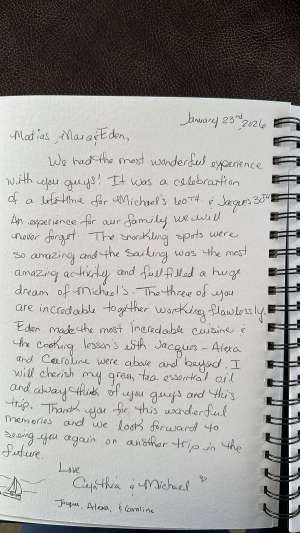 January 23rd, 2026
Matias, Mara & Eden,
We had the most wonderful experience
with you guys! It was a celebration
of a lifetime for Michael's 60TH & Jacques 30th
An experience for our family we will
never forget. The snorkling spots were
so amazing and the sailing was the most
amazing activity and fullfilled a huge
dream of Michael's. The three of you
are incredable together working flawlessly.
Eden made the most incredable cuisine &
the cooking lessons with Jacques - Alexa
and Caroline were above and beyond. I
will cherish my green tea essential oil
and always think of you guys and this
trip. Thank you for this wonderful
memories and we look forward to
seeing you again on another trip in the
future.
Love
Cynthia & Michael
Jacques, Alexa, & Caroline